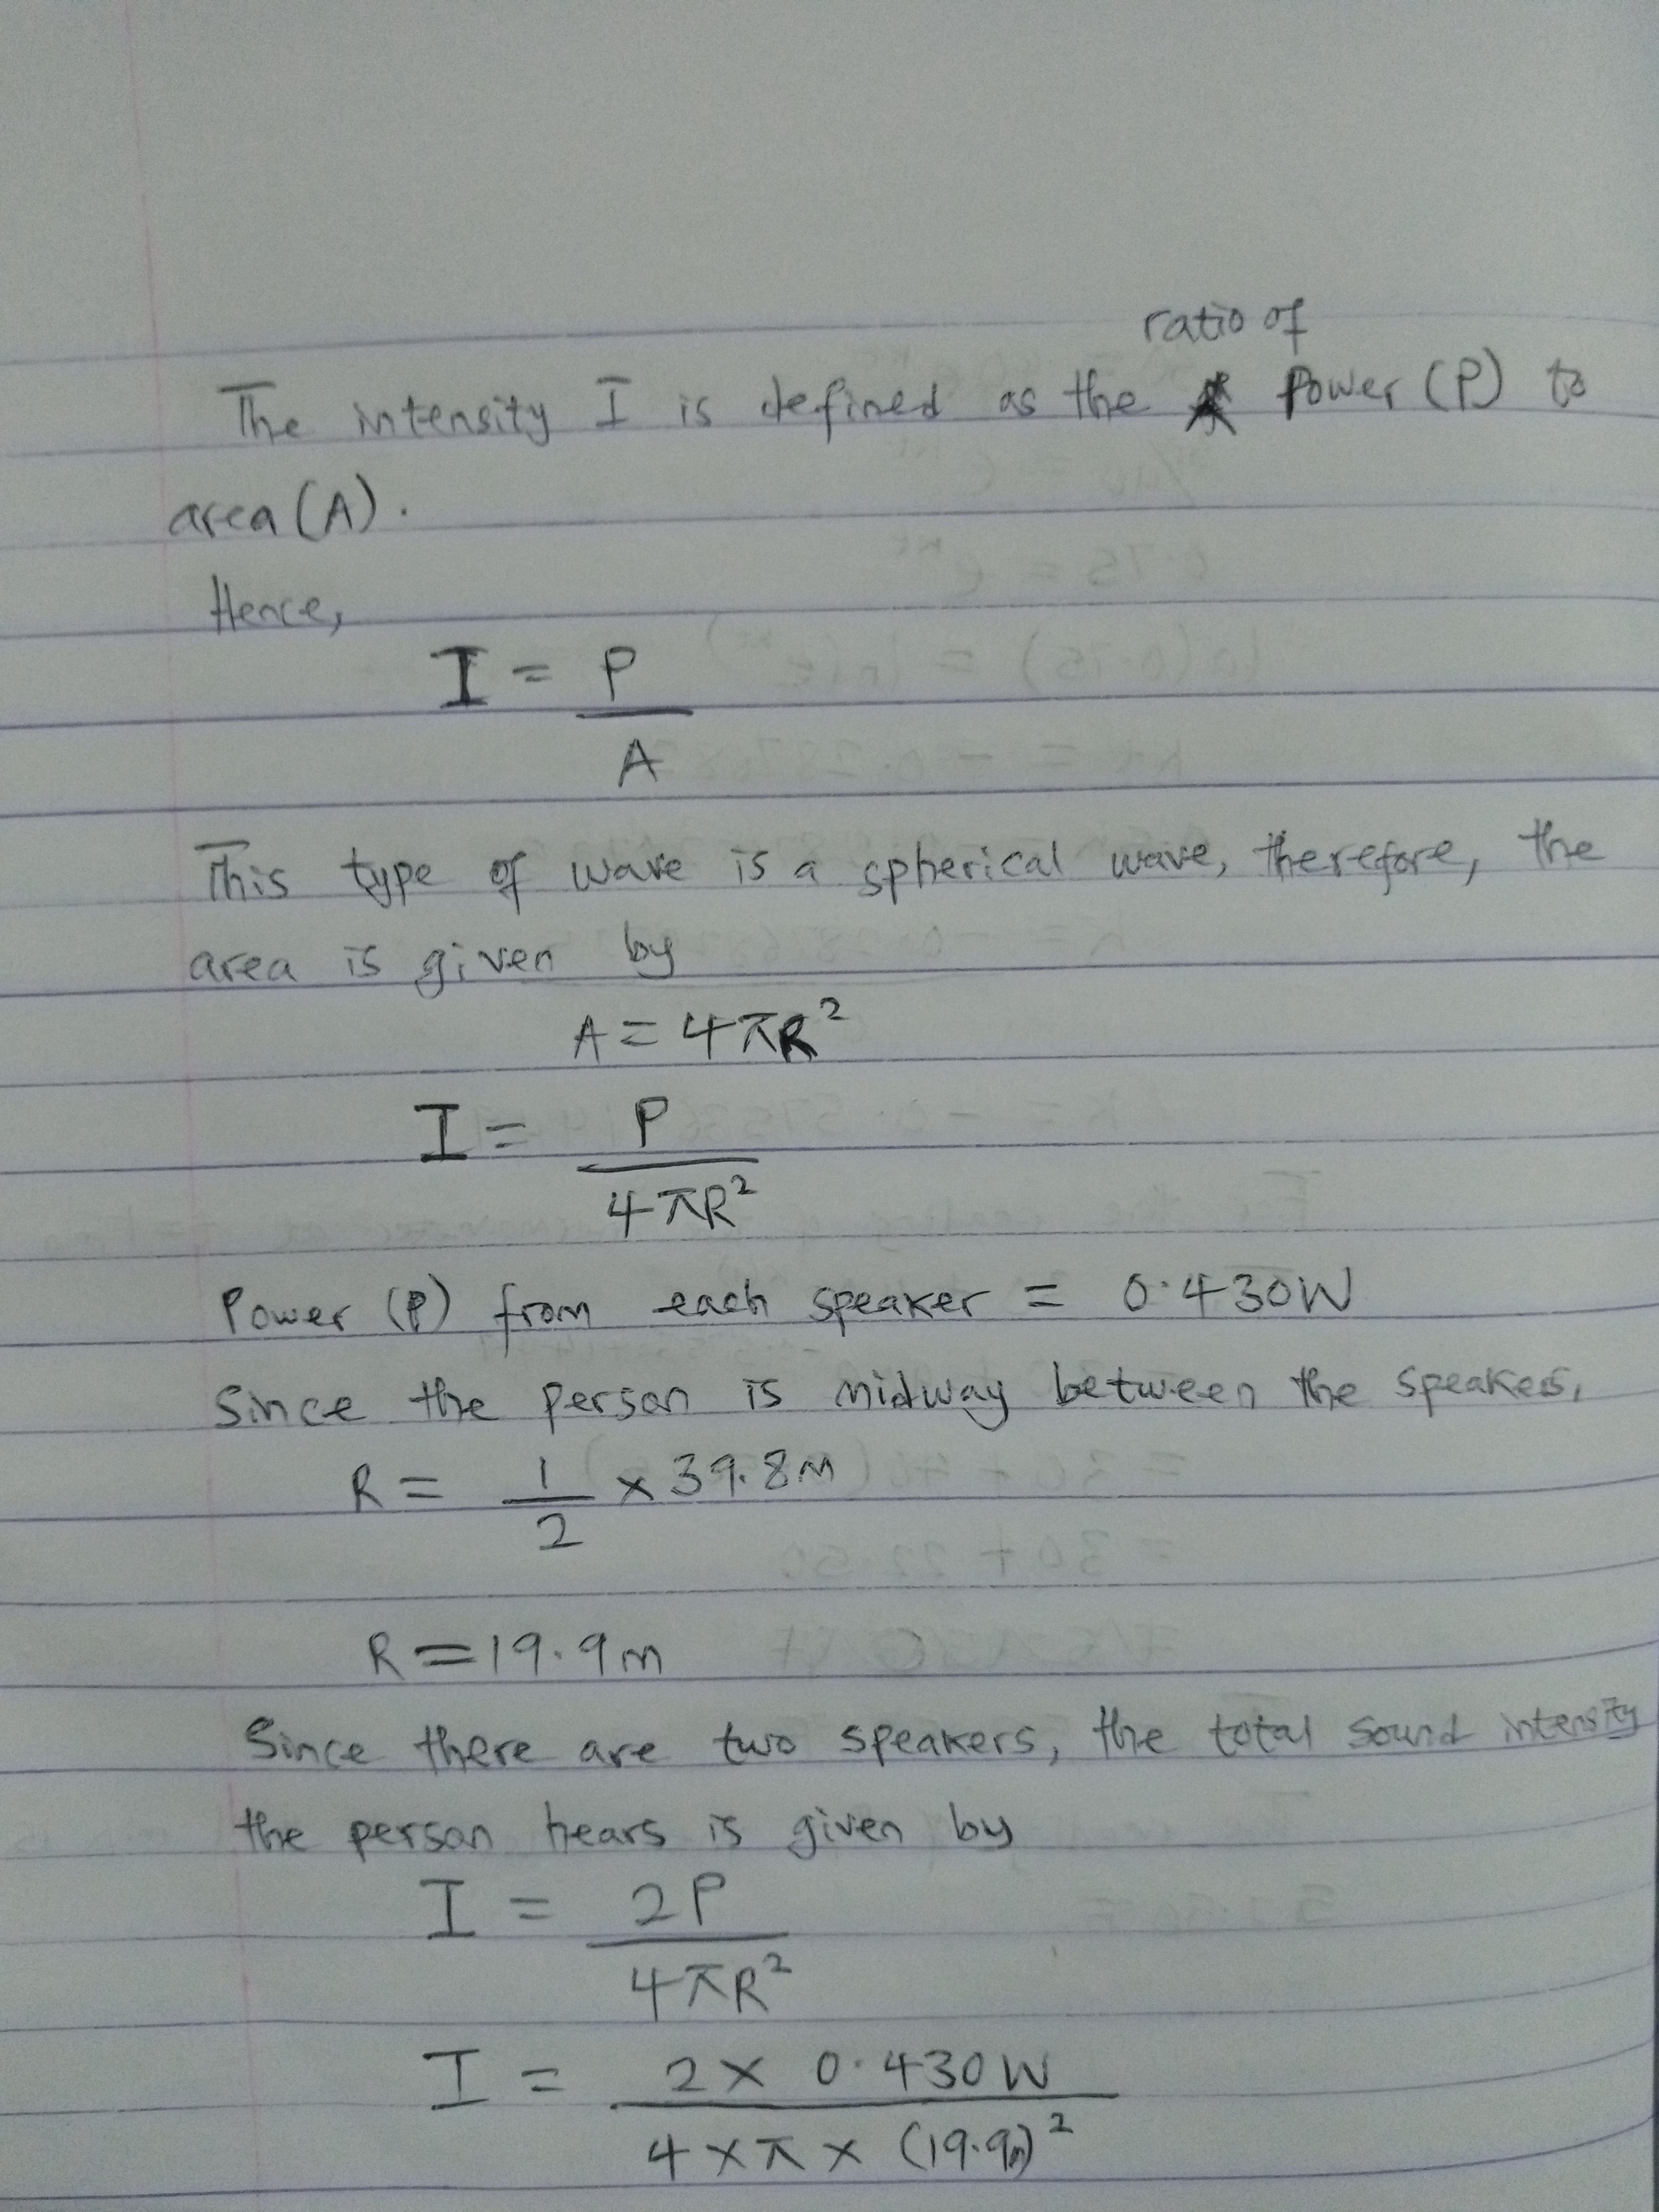 ratio of
The intensity I is defined as the Power (P) to
area (A).
Hence,
I = P
A
This type of wave is a spherical wave, therefore, the
area is given by
A = 4πR²
I = P
4πR²
Power (P) from each speaker = 0.430W
Since the person is midway between the speakers,
R = 1/2 × 39.8m
R = 19.9m
Since there are two speakers, the total sound intensity
the person hears is given by
I = 2P
4πR²
I = 2 × 0.430W
4 × π × (19.9m)²